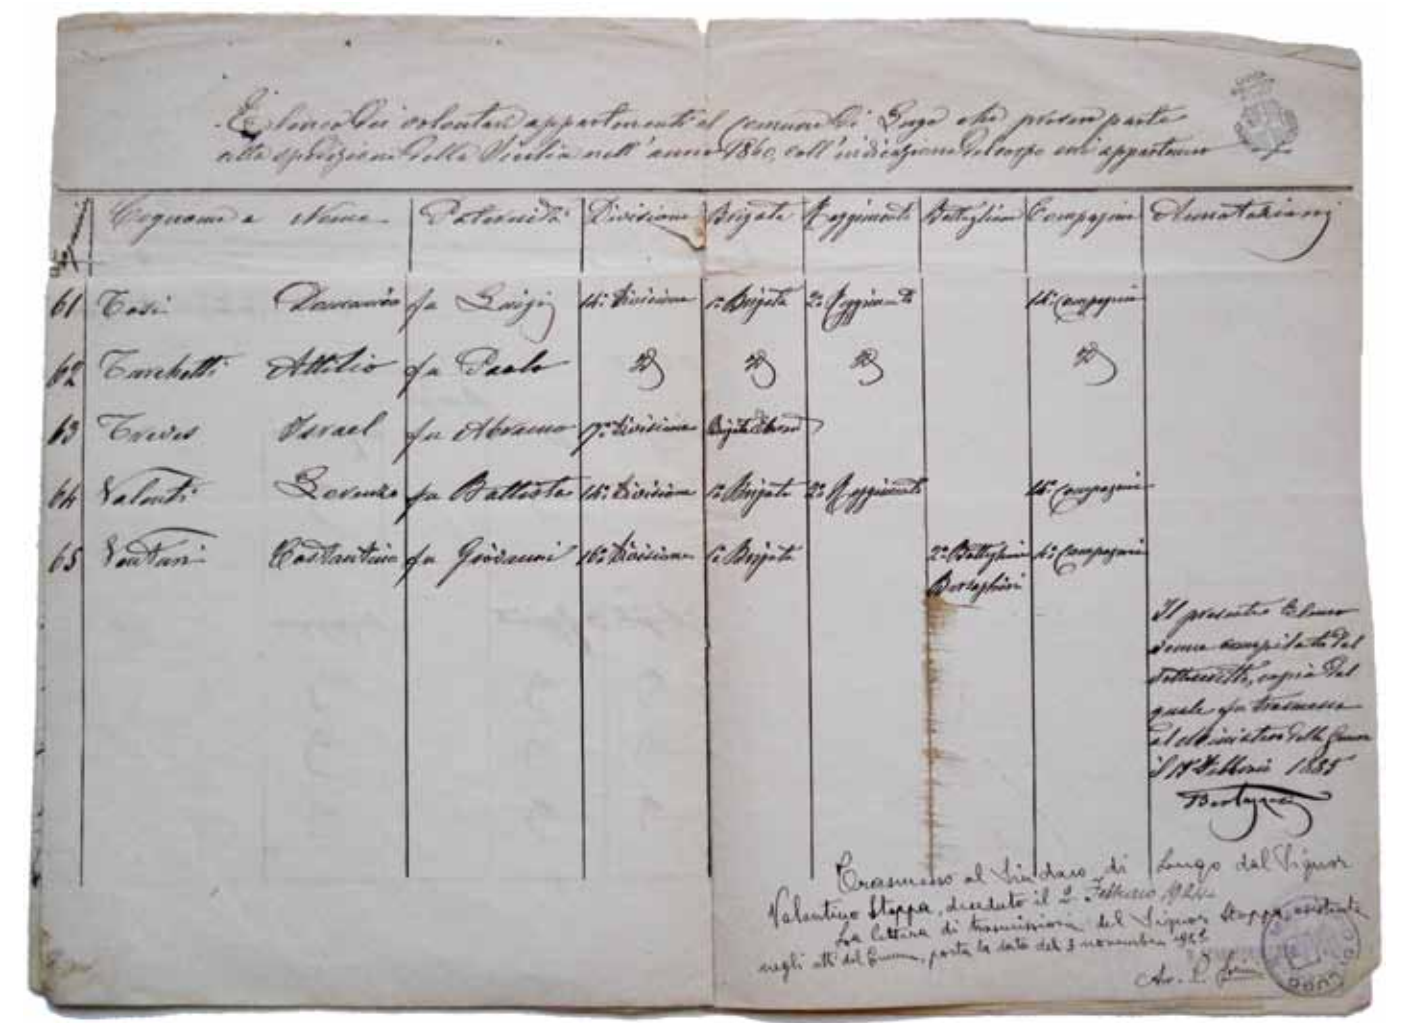 Elenco dei volontari appartenenti al comune di Lugo che presero parte
alla spedizione della Sicilia nell'anno 1860, coll'indicazione del corpo cui appartennero
Cognome e Nome Paternità Divisione Brigata Reggimento Battaglione Compagnia Annotazioni
61 Tosi Domenico fu Luigi 14a Divisione 1a Brigata 2o Reggimento 14a Compagnia
62 Tarchetti Attilio fu Paolo
63 Treves Israel fu Abramo 17a Divisione Brigata
64 Valenti Lorenzo fu Battista 14a Divisione 1a Brigata 2o Reggimento 14a Compagnia
65 Venturi Costantino fu Giovanni 16a Divisione 1a Brigata 2o Battaglione 4a Compagnia
Bersaglieri
Il presente Elenco
venne compilato dal
sottoscritto, copia del
quale fu trasmessa
al Ministro della Guerra
il Febbraio 1885
Trasmesso al Sindaco di Lugo dal Signor
Valentino Stoppa, deceduto il 2 Febbraio
La lettera di trasmissione del Signor Stoppa, esistente
negli atti del Comune, porta la data del 3 novembre